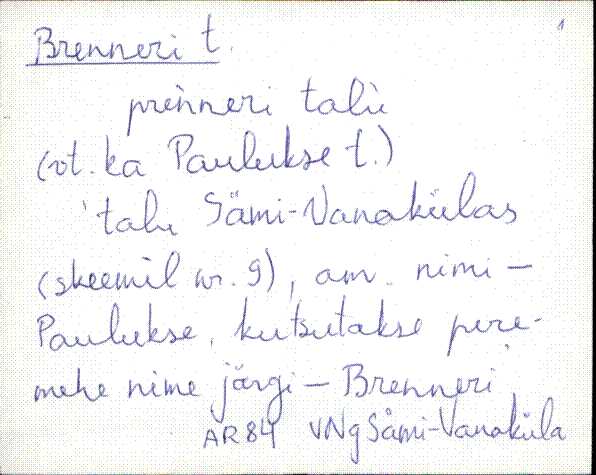 Brenneri t. 1
prènneri talù
(vt. ka Paulukse t.)
talu Sämi-Vanakülas
(skeemil nr. 9), am. nimi -
Paulukse, kutsutakse pere-
mehe nime järgi - Brenneri
AR84 VNg Sämi-Vanaküla